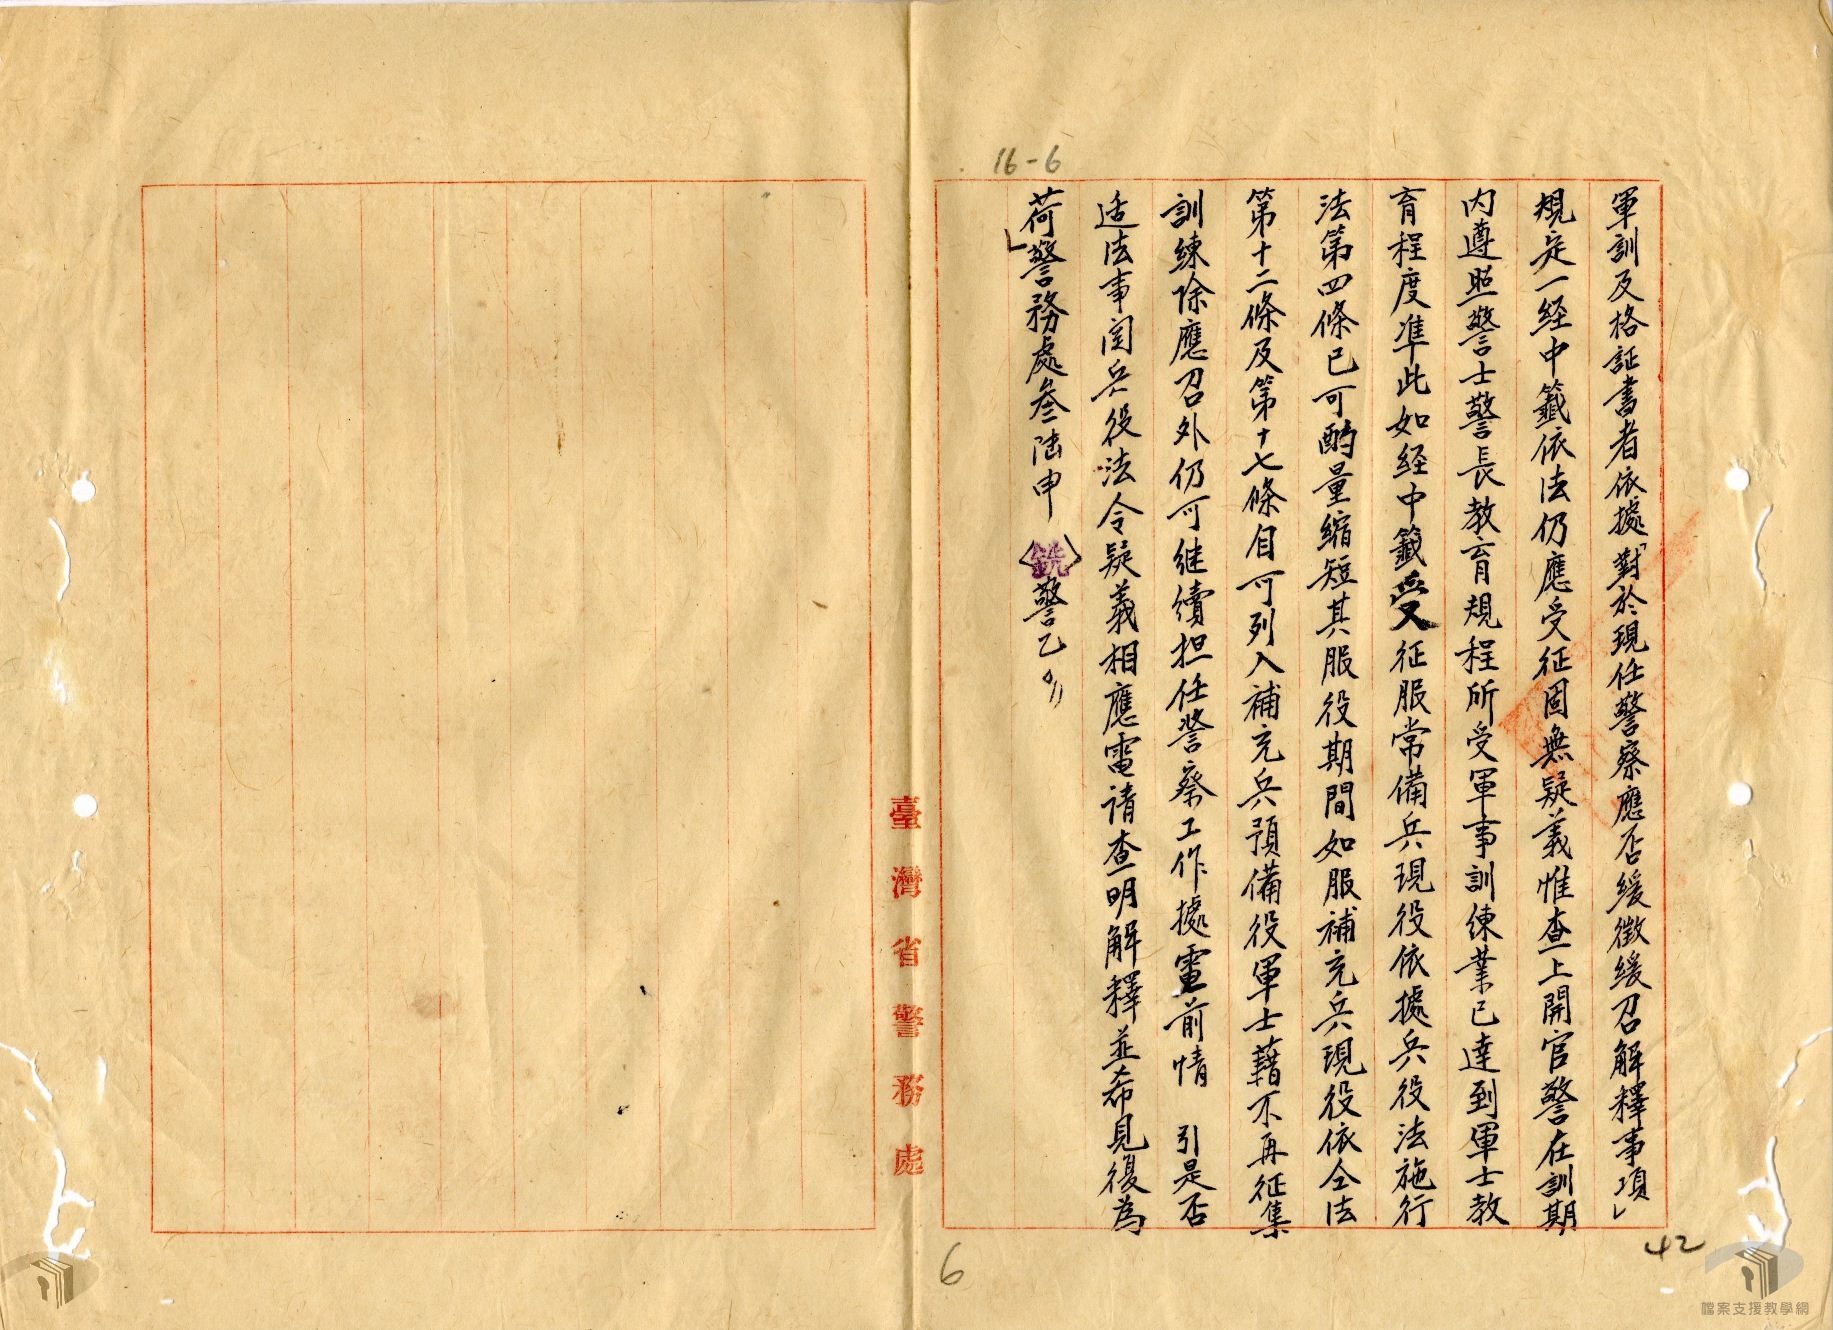 16-6
軍訓及格証書者依據「對於現任警察應否緩徵緩召解釋事項」
規定一経中籤依法仍應受征固無疑義惟查上開官警在訓期
内遵照警士警長教育規程所受軍事訓練業已達到軍士教
育程度準此如経中籤受征服常備兵現役依據兵役法施行
法第四條已可酌量縮短其服役期間如服補充兵現役依仝法
第十二條及第十七條自可列入補充兵預備役軍士藉不再征集
訓練除應召外仍可継續担任警察工作據電前情 引是否
适法事関兵役法令疑義相應電请查明解釋並希見復為
荷警務處叁陆申銑警乙
臺灣省警務處
6
42
檔案支援教學網